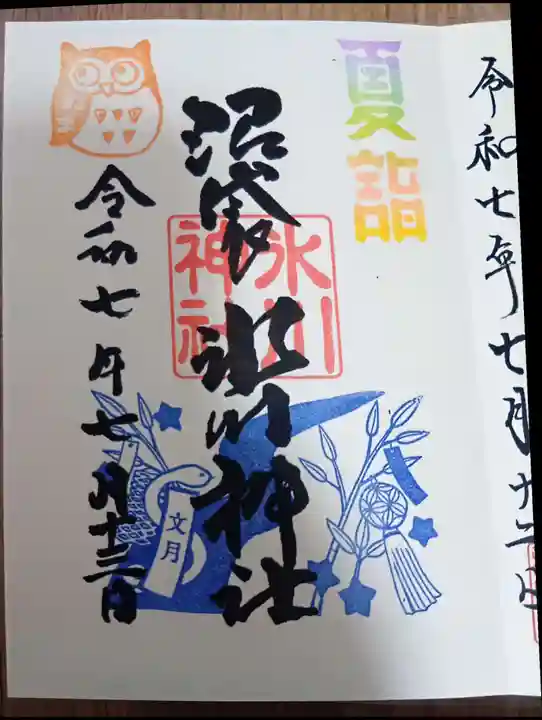 令和七年七月十二日
夏詣
沼袋氷川神社
氷川神社
令和七年七月十三日
文月